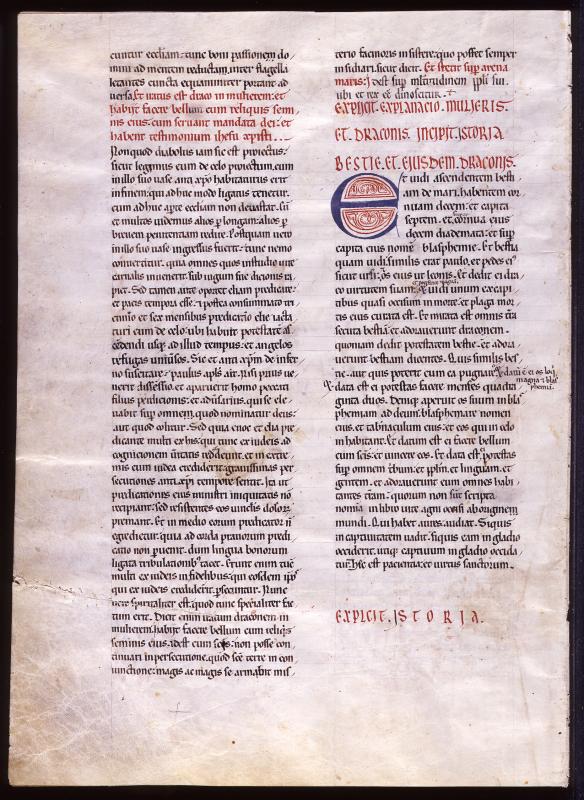 cuntur eccliam: tunc boni passionem do
mini ad mentem reducam, inter flagella
letantes cuncta equanimiter portant ad
uersa. Et iratus est draco in mulierem: et
habiit facere bellum cum reliquis semi
nis eius. cum seruant mandata dei: et
habent testimonium ihesu xpisti.
Non quod diabolus iam sic est proiectus.
sicut legimus eum de celo proiectum. cum
in illo suo uase. anti xpo habitaturus erit
infinem: qui adhuc modo ligatus tenetur.
cum adhuc apte eccliam non deuastat. Sz
et multos uidemus alios p longam: alios p
breuem penitentiam redire. Postquam uero
in illo suo uase ingressus fuerit: tunc nemo
conuertitur. quia omnes quos in studio uite
carnalis inuenerit. sub iugum sue dicionis ra
piet. Sed tamen ante oportet eliam predicare
et pacis tempora esse: et postea consummato tri
ennio et sex mensibus predicatio
turi eum de celo. ubi habuit potestatem as
cendendi usq: ad illud tempus. et angelos
refugas uniuersos. Sic et anti xpm de infer
no suscitare. paulus apls ait. Nisi prius ue
nerit dissessio. et apparuerit homo peccati
filius perdicionis: et aduersarius. qui se ele
uabit sup omnem. quod nominatur deus:
aut quod colitur. Sed quia enoc et elia pre
dicante multi ex his: qui tunc ex iudeis ad
cognicionem
mis cum iudea crediderit: grauissimas per
secutiones antixpi tempore sentit. Ita ut
predicationes eius ministri iniquitatis no
recipiant: sed resistentes eos uinclis dolorz
premant. Et in medio eorum predicator n
egredietur. quia ad corda prauorum predi
catio non peruenit. dum lingua bonorum
ligata tribulationib tacet. Erunt enim tunc
multi ex iudeis infidelibus. qui eosdem ipsos
qui ex iudeis crediderit. psecuntur. Nunc
uero spiritaliter est. quod tunc specialiter fac
tum erit. Dicit enim iratum draconem in
mulierem. habiit facere bellum cum reliquis
seminis eius. idest cum scis: non posse con
tinuari in persecutione. quod sce terre in con
iunctione: magis ac magis se armabit mis
terio facinoris insistere. quo posset semper
insidiari. sicut dicit. Et stetit sup arena
maris. Idest sup multitudinem ppli sui.
ubi et rex ee dinoscitur.
EXPLICIT. EXPLANACIO. MULIERIS
ET. DRACONIS. INCIPIT. ISTORIA
BESTIE. ET. EIUSDEM. DRACONIS.
Et uidi ascendentem besti
am de mari. habentem cor
nuam decem: et capita
septem. et super cornua eius
decem diademata: et sup
capita eius nomen blasphemie. Et bestia
quam uidi. similis erat pardo. et pedes ei
sicut ursi. os eius ut leonis. Et dedit ei dra
co uirtutem suam. Et uidi unum ex capi
tibus quasi occisum in morte: et plaga mor
tis eius curata est. Et mirata est omnis tra
secuta bestia: et adorauerunt draconem.
quoniam dedit potestatem bestie. et adora
uerunt bestiam dicentes. Quis similis bes
tie. aut quis poterit cum ea pugnare. Et datum e ei os loqs
magna et blas
phemis.
Et data est ei potestas facere menses quadra
ginta duos. Denique aperuit os suum in blas
phemiam ad deum. blasphemare nomen
eius. et tabernaculum eius. et eos qui in celo
inhabitant. Et datum est ei facere bellum
cum scis. et uincere eos. Et data est ei potestas
sup omnem tbum. et pplm. et linguam. et
gentem. et adorauerunt eum omnes habi
tantes tram. quorum non sunt scripta
nomina in libro uite agni occisi ab origine
mundi. Qui habet aures audiat. Si quis
in captiuitatem uadit. si quis eam in gladio
occiderit. utique captiuum in gladio occida
tur. hec est pacientia et uirtus sanctorum.
EXPLICIT. ISTORIA.